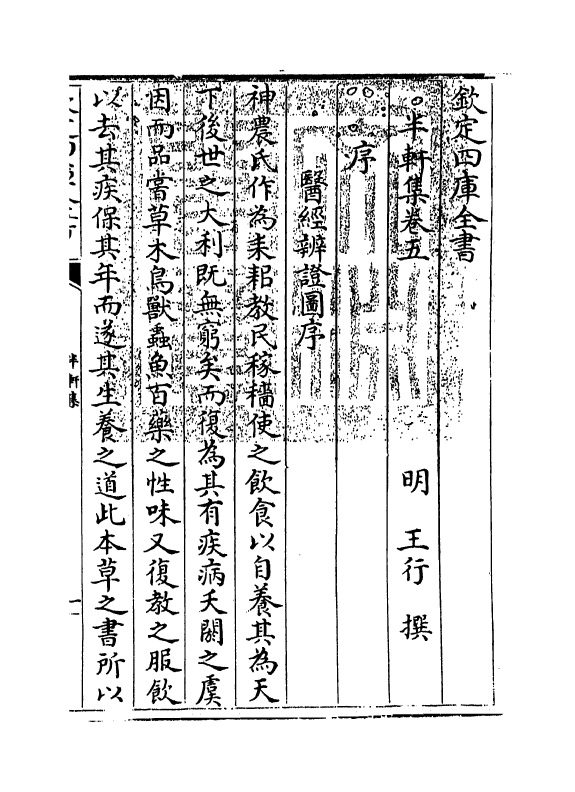 欽定四庫全書
半軒集卷五
明　王行　撰
序
醫經辨證圖序
神農氏作為耒耜教民稼穡使之飲食以自養其為天
下後世之大利既無窮矣而復為其有疾病夭閼之虞
因而品嘗草木鳥獸蟲魚百藥之性味又復教之服飲
以去其疾保其年而遂其生養之道此本草之書所以
半軒集
一